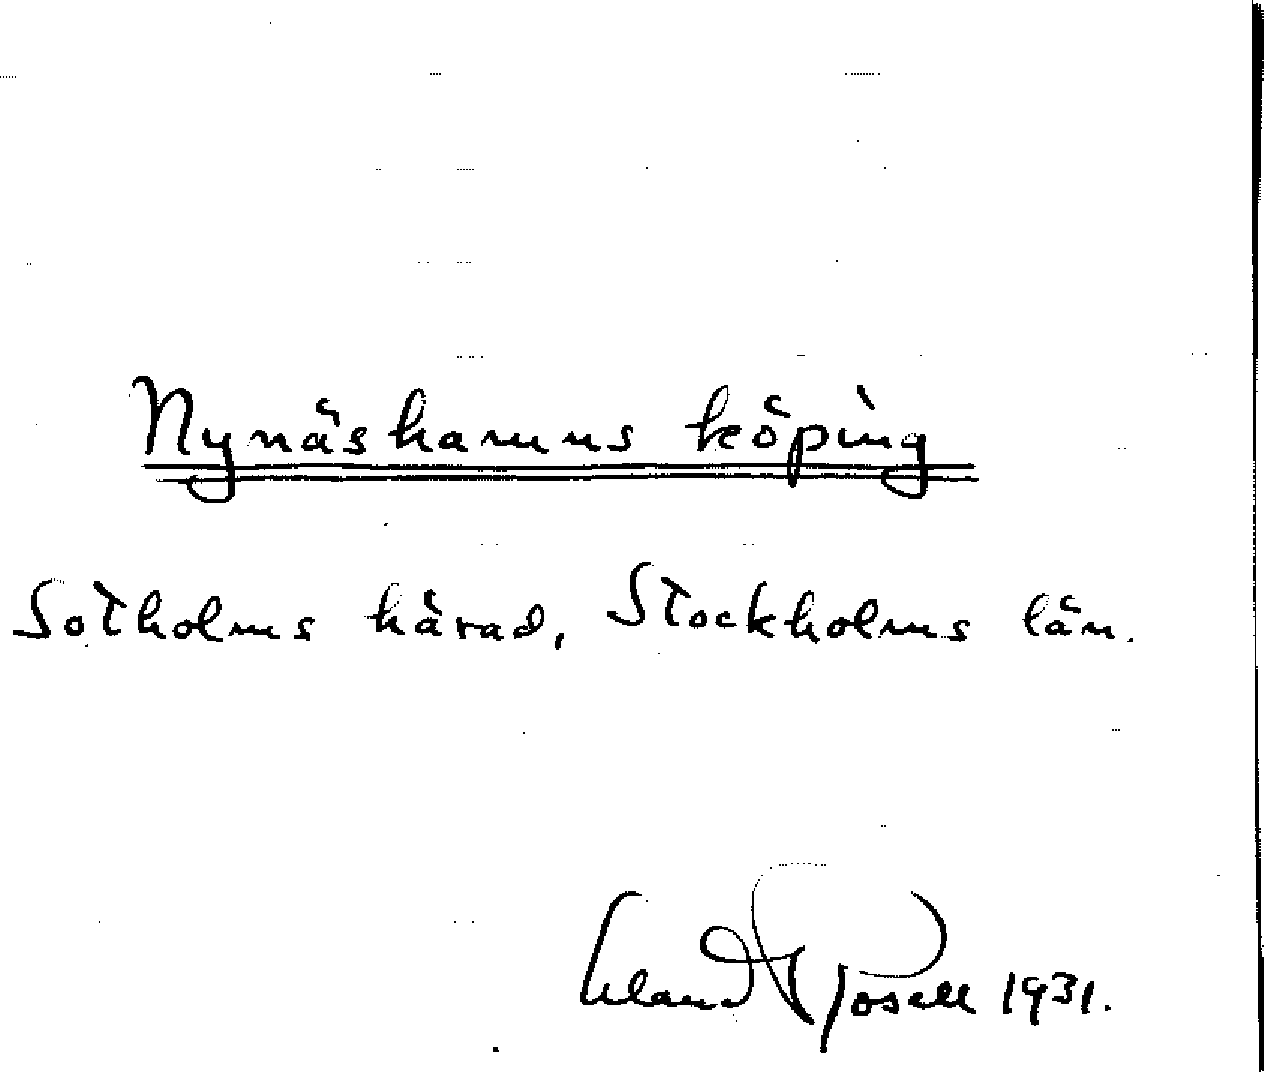 Nynäshamns köping
Sotholms härad, Stockholms län.
Erland Rosell 1931.